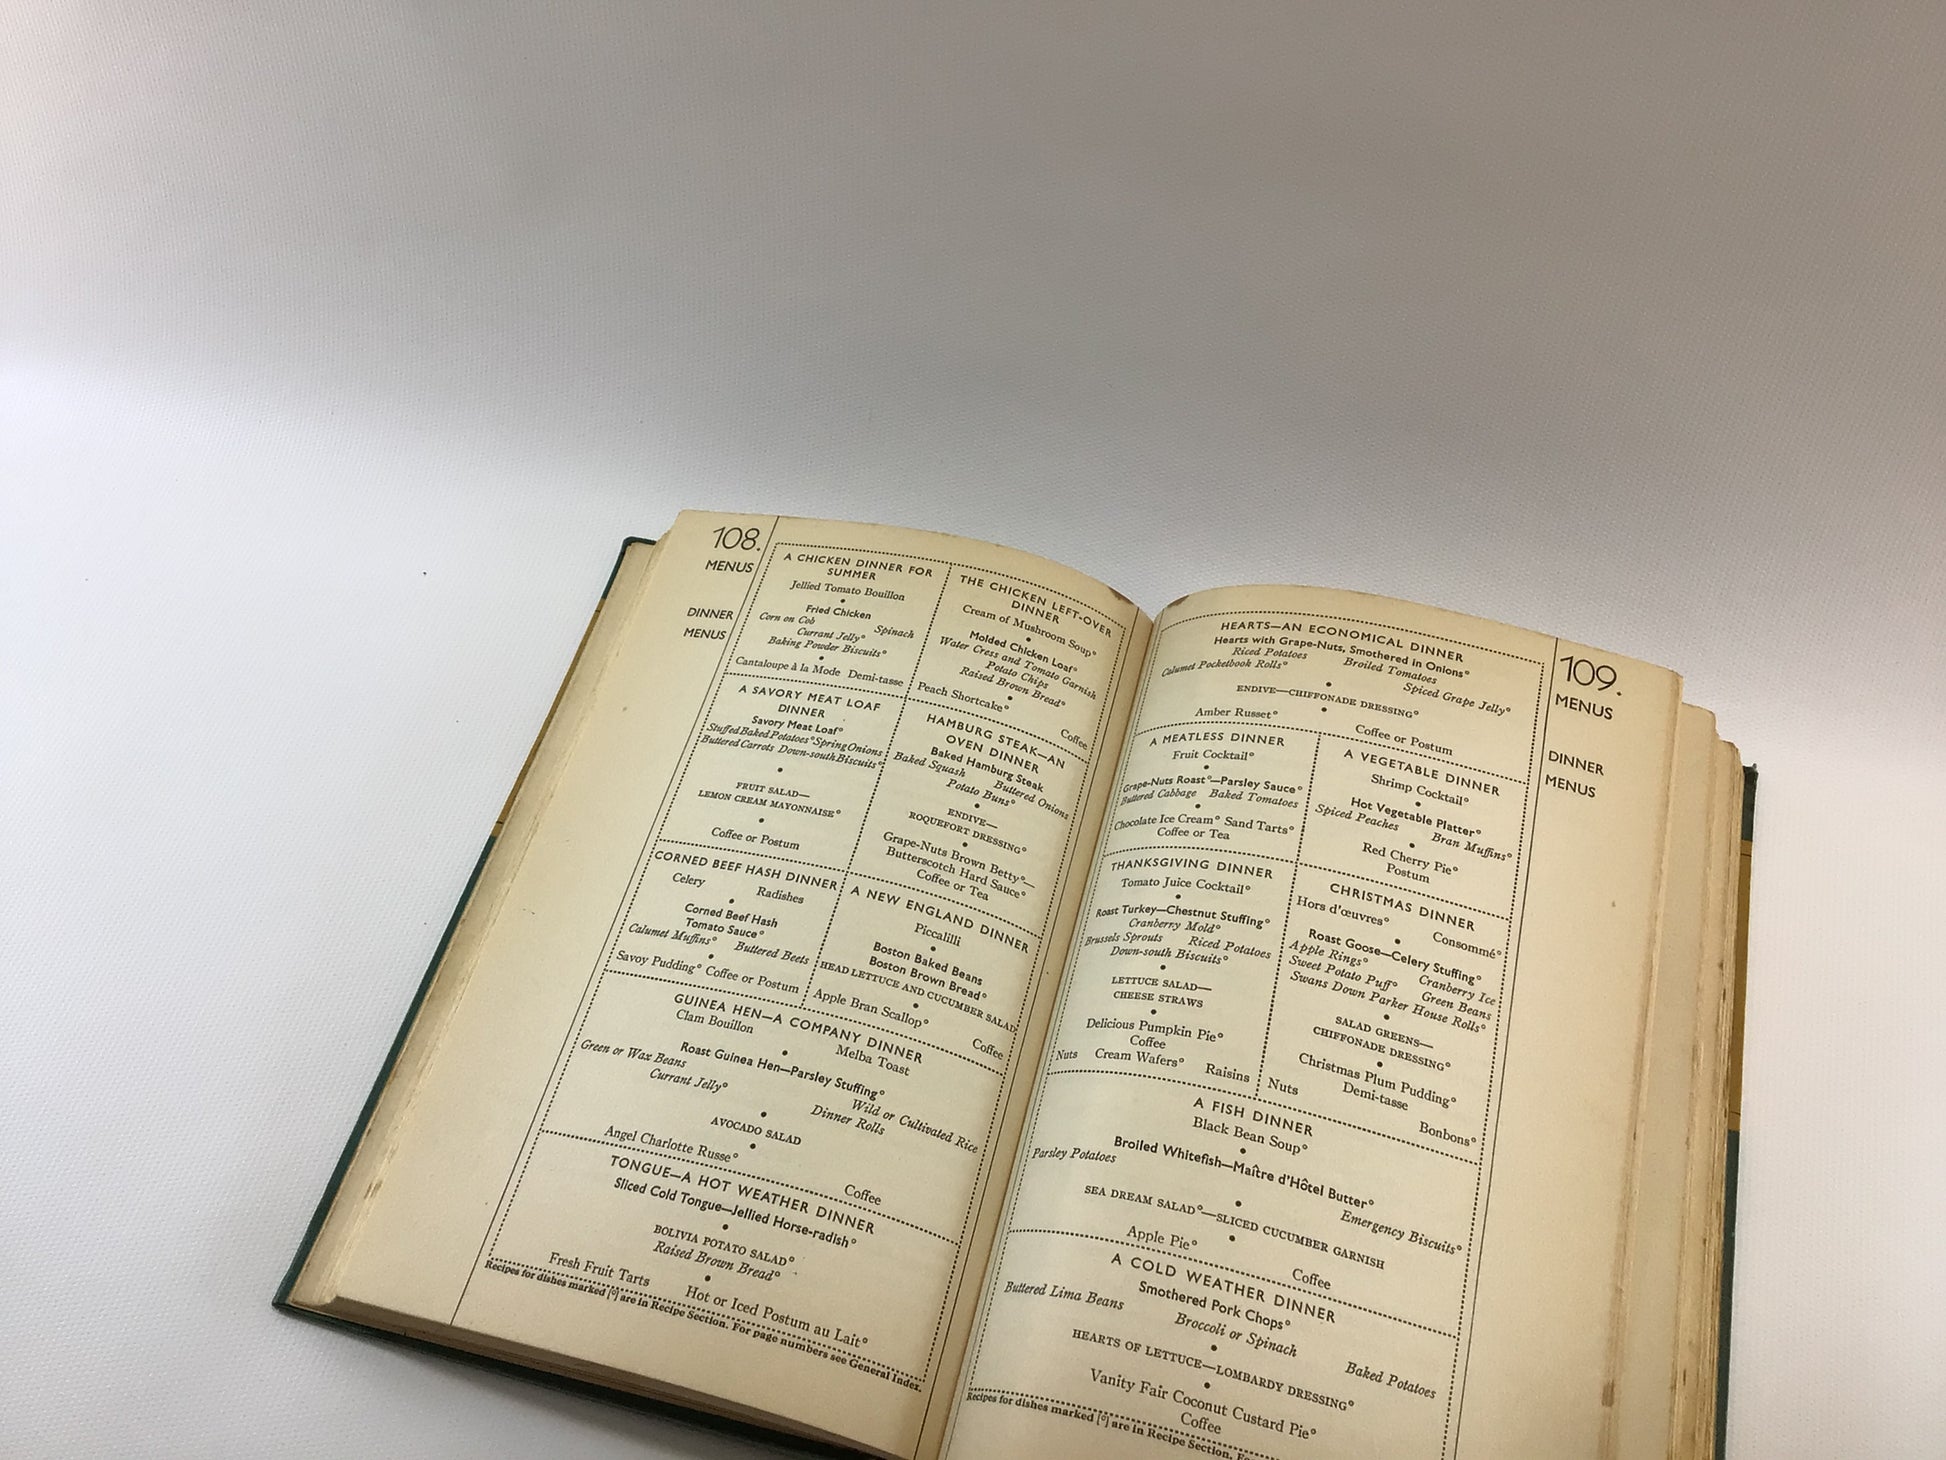 108.
MENUS
DINNER
MENUS
A CHICKEN DINNER FOR
SUMMER
Jellied Tomato Bouillon
•
Fried Chicken
Corn on Cob Spinach
Currant Jelly°
Baking Powder Biscuits°
•
Cantaloupe à la Mode Demi-tasse
THE CHICKEN LEFT-OVER
DINNER
Cream of Mushroom Soup°
•
Molded Chicken Loaf°
Water Cress and Tomato Garnish
Potato Chips
Raised Brown Bread°
•
Peach Shortcake° Coffee
A SAVORY MEAT LOAF
DINNER
Savory Meat Loaf°
Stuffed Baked Potatoes° Spring Onions
Buttered Carrots Down-south Biscuits°
•
FRUIT SALAD—
LEMON CREAM MAYONNAISE°
•
Coffee or Postum
HAMBURG STEAK—AN
OVEN DINNER
Baked Hamburg Steak
Baked Squash Buttered Onions
Potato Buns°
•
ENDIVE—
ROQUEFORT DRESSING°
•
Grape-Nuts Brown Betty°—
Butterscotch Hard Sauce°
Coffee or Tea
CORNED BEEF HASH DINNER
Celery Radishes
•
Corned Beef Hash
Tomato Sauce°
Calumet Muffins° Buttered Beets
•
Savoy Pudding° Coffee or Postum
A NEW ENGLAND DINNER
Piccalilli
•
Boston Baked Beans
Boston Brown Bread°
HEAD LETTUCE AND CUCUMBER SALAD
•
Apple Bran Scallop° Coffee
GUINEA HEN—A COMPANY DINNER
Clam Bouillon Melba Toast
•
Roast Guinea Hen—Parsley Stuffing°
Green or Wax Beans Wild or Cultivated Rice
Currant Jelly° Dinner Rolls
•
AVOCADO SALAD
•
Angel Charlotte Russe° Coffee
TONGUE—A HOT WEATHER DINNER
Sliced Cold Tongue—Jellied Horse-radish°
•
BOLIVIA POTATO SALAD°
Raised Brown Bread°
•
Fresh Fruit Tarts Hot or Iced Postum au Lait°
Recipes for dishes marked [°] are in Recipe Section. For page numbers see General Index.
109.
MENUS
DINNER
MENUS
HEARTS—AN ECONOMICAL DINNER
Hearts with Grape-Nuts, Smothered in Onions°
Riced Potatoes Broiled Tomatoes
Calumet Pocketbook Rolls° Spiced Grape Jelly°
•
ENDIVE—CHIFFONADE DRESSING°
•
Amber Russet° Coffee or Postum
A MEATLESS DINNER
Fruit Cocktail°
•
Grape-Nuts Roast°—Parsley Sauce°
Buttered Cabbage Baked Tomatoes
•
Chocolate Ice Cream° Sand Tarts°
Coffee or Tea
A VEGETABLE DINNER
Shrimp Cocktail°
•
Hot Vegetable Platter°
Spiced Peaches Bran Muffins°
•
Red Cherry Pie°
Postum
THANKSGIVING DINNER
Tomato Juice Cocktail°
•
Roast Turkey—Chestnut Stuffing°
Cranberry Mold°
Brussels Sprouts Riced Potatoes
Down-south Biscuits°
•
LETTUCE SALAD—
CHEESE STRAWS
•
Delicious Pumpkin Pie°
Coffee
Nuts Cream Wafers° Raisins
CHRISTMAS DINNER
Hors d'œuvres° Consommé°
•
Roast Goose—Celery Stuffing°
Apple Rings° Cranberry Ice
Sweet Potato Puff° Green Beans
Swans Down Parker House Rolls°
•
SALAD GREENS—
CHIFFONADE DRESSING°
•
Christmas Plum Pudding°
Demi-tasse
Nuts Bonbons°
A FISH DINNER
Black Bean Soup°
•
Broiled Whitefish—Maître d'Hôtel Butter°
Parsley Potatoes Emergency Biscuits°
•
SEA DREAM SALAD°—SLICED CUCUMBER GARNISH
•
Apple Pie° Coffee
A COLD WEATHER DINNER
Smothered Pork Chops°
Buttered Lima Beans Broccoli or Spinach Baked Potatoes
•
HEARTS OF LETTUCE—LOMBARDY DRESSING°
•
Vanity Fair Coconut Custard Pie°
Coffee
Recipes for dishes marked [°] are in Recipe Section.